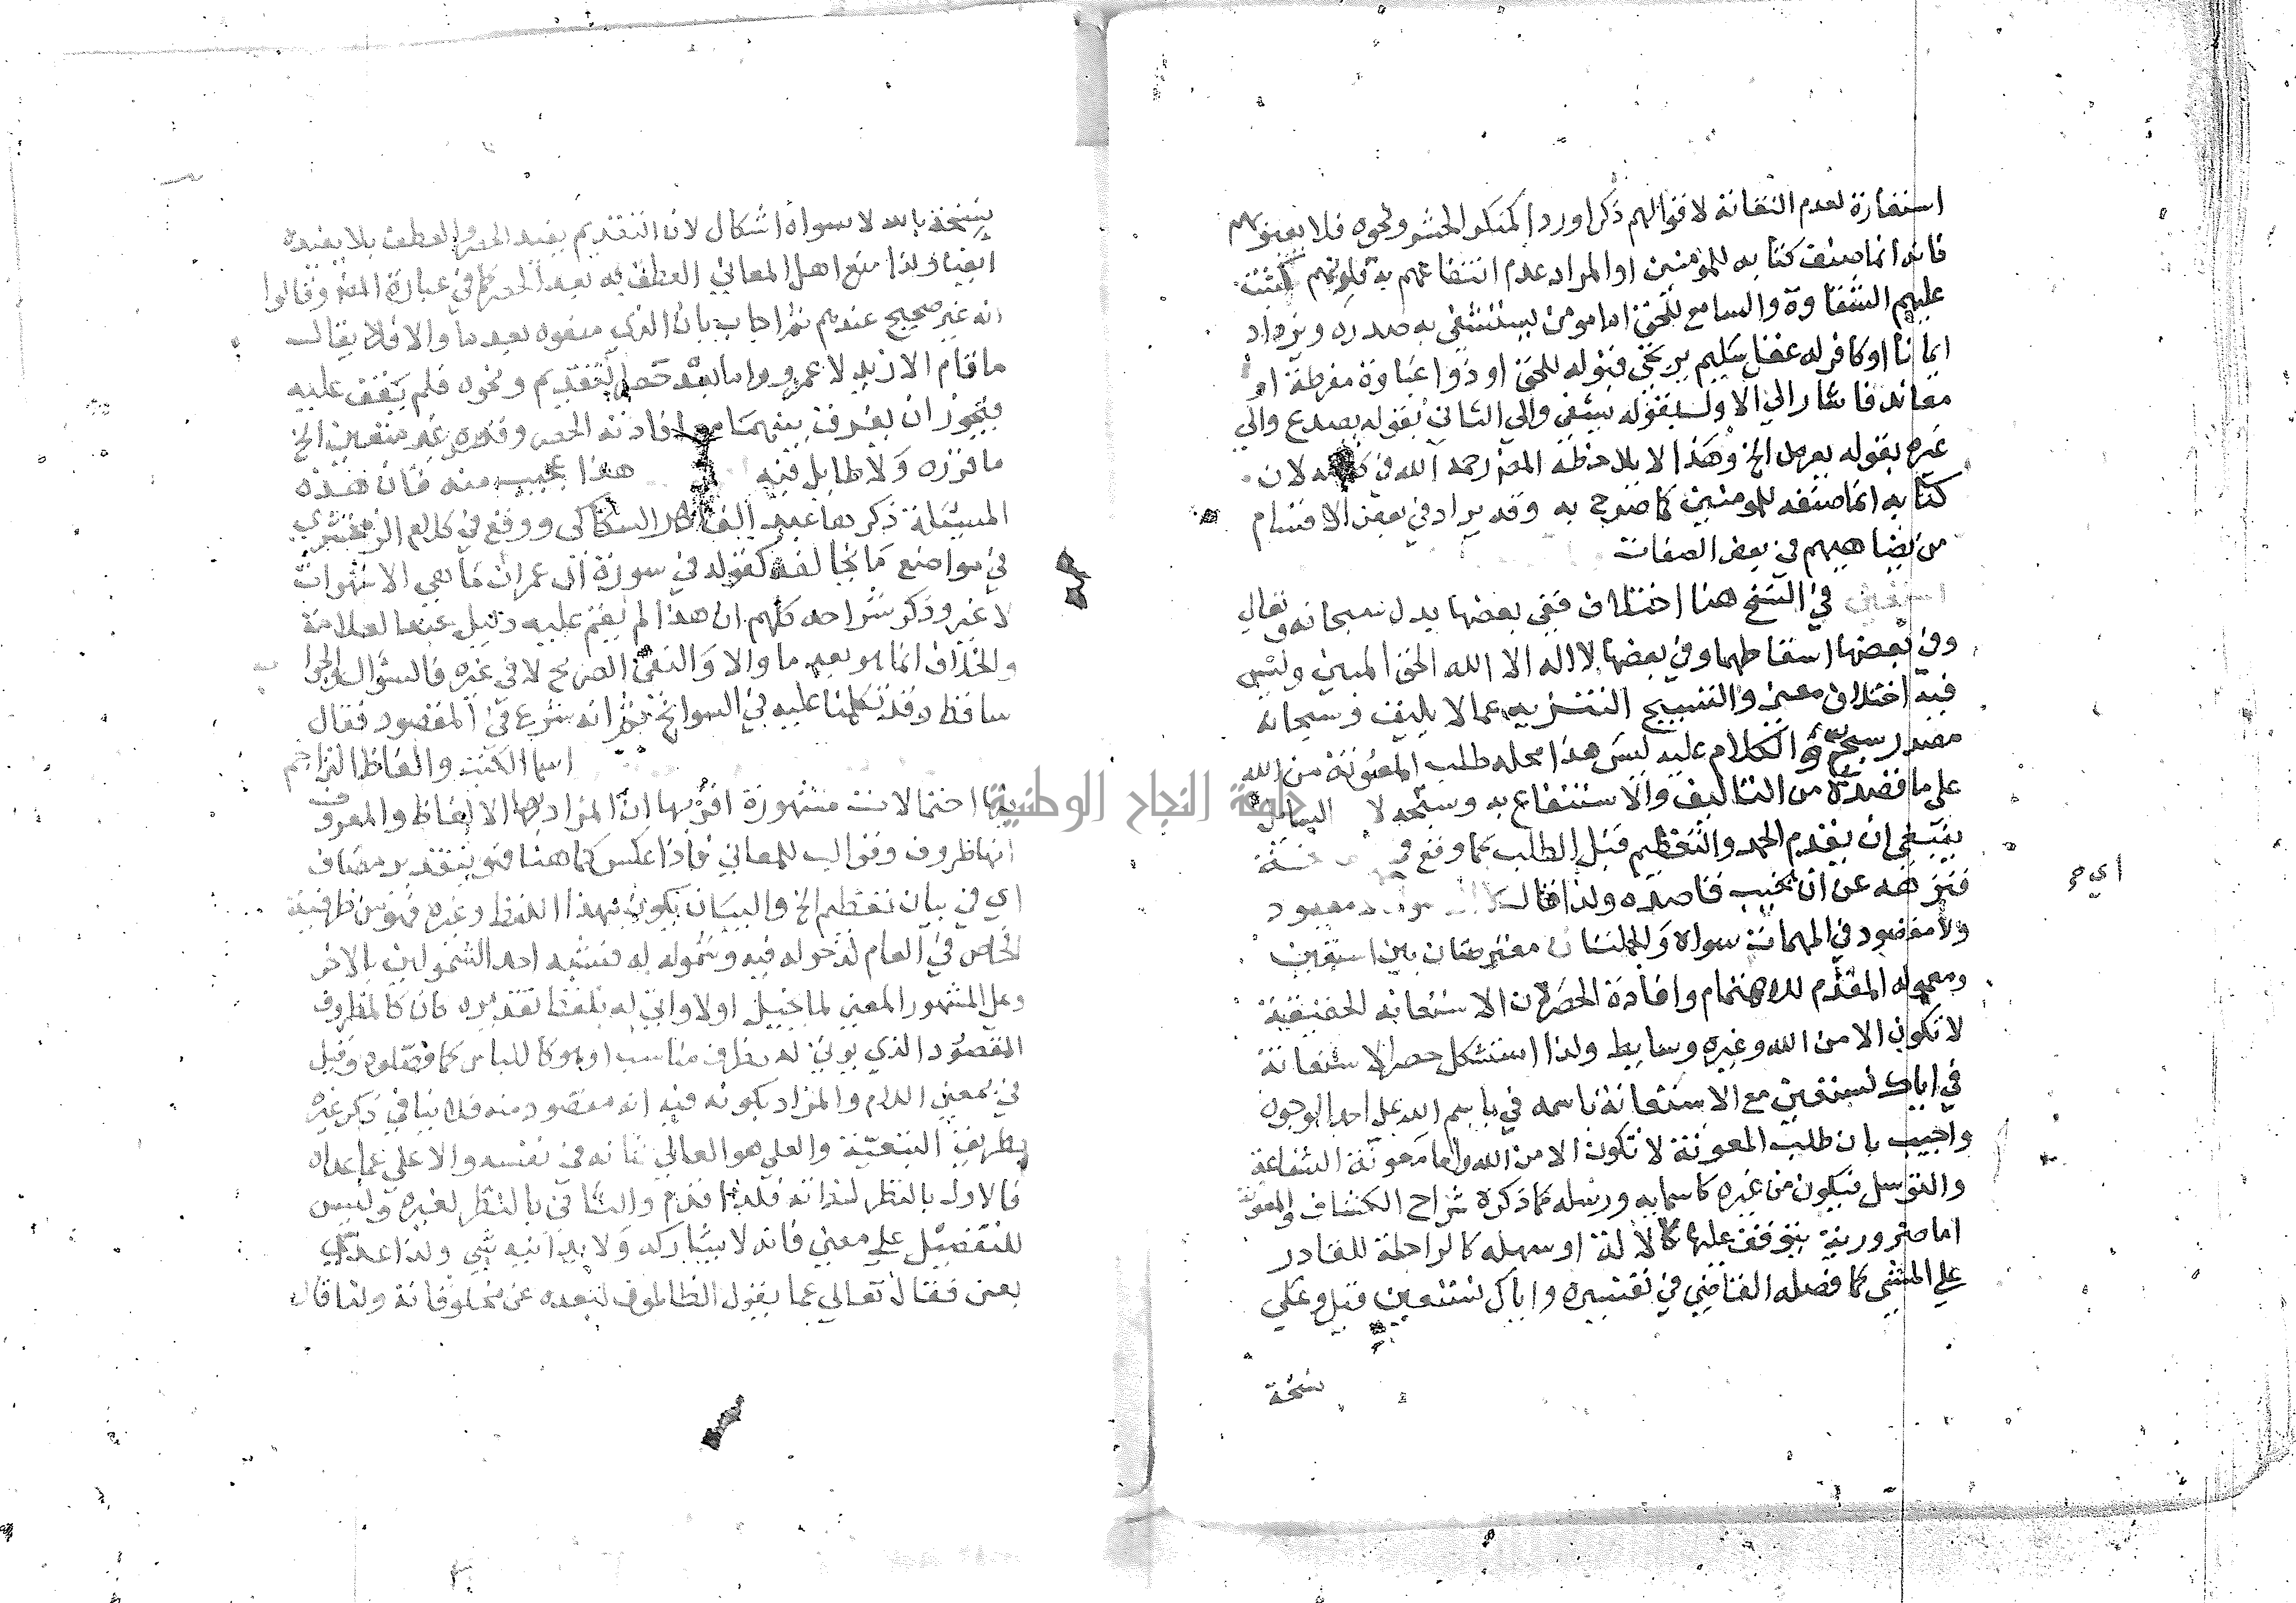 استفارة لعدم التفاته لاقوالهم ذكرا وردا كمنكر الحشر ونحوه فلا يعبؤ بهم
فانه انما صنف كتابه للمؤمنين او المراد عدم انتفاعهم به قلوبهم
عليهم الشقاوة والسامع للحق اما مومن يستشفي به صدره ويزداد
ايمانا او كافر له عقل سليم يرتجى قبوله للحق او ذو غباوة مفرطة او
معاند فاشار الي الاول بقوله يشفي والي الثاني بقوله يصدع والي
غيره بقوله الخ وهذا لا يلاحظه المص رحمه الله في لان
كتابه انما صنفه للمومنين كما صرح به وقد يراد في بعض الاقسام
من يضاهيهم في بعض الصفات
استعين في النسخ هنا اختلاف ففي بعضها بدل سبحانه وتعالي
وفي بعضها اسقاطهما وفي بعضها لا اله الا الله الحق المبين وليس
فيه اختلاف معنى والتسبيح التنزيه عما لا يليق وسبحانه
مصدر سبح والكلام عليه ليس هذا محله طلب المعونة من الله
علي ما قصده من التاليف والاستنفاع به وسبحه لا السائل
ينبغي ان يقدم الحمد والتعظيم قبل الطلب كما وقع في
فنزهه عن ان يخيب قاصده ولذا قال معبود
ولا مقصود في المهمات سواه والجملتان معترضتان بين استعين
ومعموله المقدم للاهتمام وافادة الحصر لان الاستعانه الحقيقية
لا تكون الا من الله وغيره وسايط ولذا استشكل حصر الاستعانة
في اياك نستعين مع الاستعانة باسمه في باسم الله علي احد الوجوه
واجيب بان طلب المعونة لا تكون الا من الله واما معونة الشفاعة
والتوسل فيكون من غيره كاسمايه ورسله كما ذكره شراح الكشاف والمعونة
اما ضرورية يتوقف عليها كالالة او سهله كالراحلة للقادر
علي المشي كما فصله القاضي في تفسيره واياك نستعين قيل وعلي
نسخة
اي م
نسخة بالله لا سواه اشكال لان التقديم يفيد الحصر والعطف بلا يفيده
ايضا ولذا منع اهل المعاني العطف به بعد الحصر كما في عبارة المص وقالوا
انه غير صحيح عندهم ثم اجاب بان الذي منعوه بعد ما والا فلا يقال
ما قام الا زيد لا عمرو واما بعد حصر التقديم ونحوه فلم يقف عليه
فيجوز ان يفرق بينهما افادته الحصر وقدره غير متعين الخ
ما قرره ولا طايل فيه هذا عجيب منه فان هذه
المسئلة ذكرها عبد القاهر والسكاكي ووقع في كلام الزمخشري
في مواضع ما يخالفه كقوله في سورة ال عمران ما هي الا شهوات
لا غير وذكر شراحه كلهم ان هذا لم يقم عليه دليل عند العلامة
والخلاف انما هو بعد ما والا والنفي الصريح لا في غيره فالسؤال والجوا
ساقط وقد تكلمنا عليه في السوانح ثم انه شرع في المقصود فقال
اسما الكتب والفاظ التراجم
فيها احتمالات مشهورة اقربها ان المراد بها الالفاظ والمعروف
انها ظروف وقوالب للمعاني فاذا عكس كما هنا فهو بتقدير مضاف
اي في بيان تعظيم الخ والبيان يكون بهذا اللفظ وغيره فهو من ظرفية
الخاص في العام لدخوله فيه وشموله له فشبه احد الشمولين بالاخر
وعلي المشهور المعنى لما تخيل اولا واتي له بلفظ تقديره كان كالمظروف
المقصود الذي يوتى له بظرف مناسب او هو كاللباس كما فصلوه وقيل
في بمعنى اللام والمراد بكونه فيه انه مقصود منه فلا ينافي ذكر غيره
بطريق التبعية والعلي هو العالي شانه في نفسه والاعلي عما عداه
فالاول بالنظر لذاته فلذا قدم والثاني بالنظر لغيره وليس
للتفضيل علي معنى فانه لا يشاركه ولا يدانيه شي ولذا عدي
بعن فقال تعالي عما يقول الظالمون لبعده عن مخلوقاته ولذا قال
جامعة النجاح الوطنية